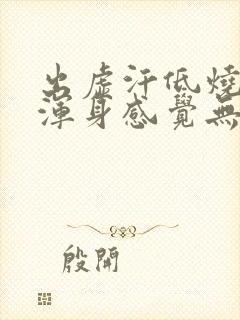 出虛汗低燒
渾身感覺無
殷開